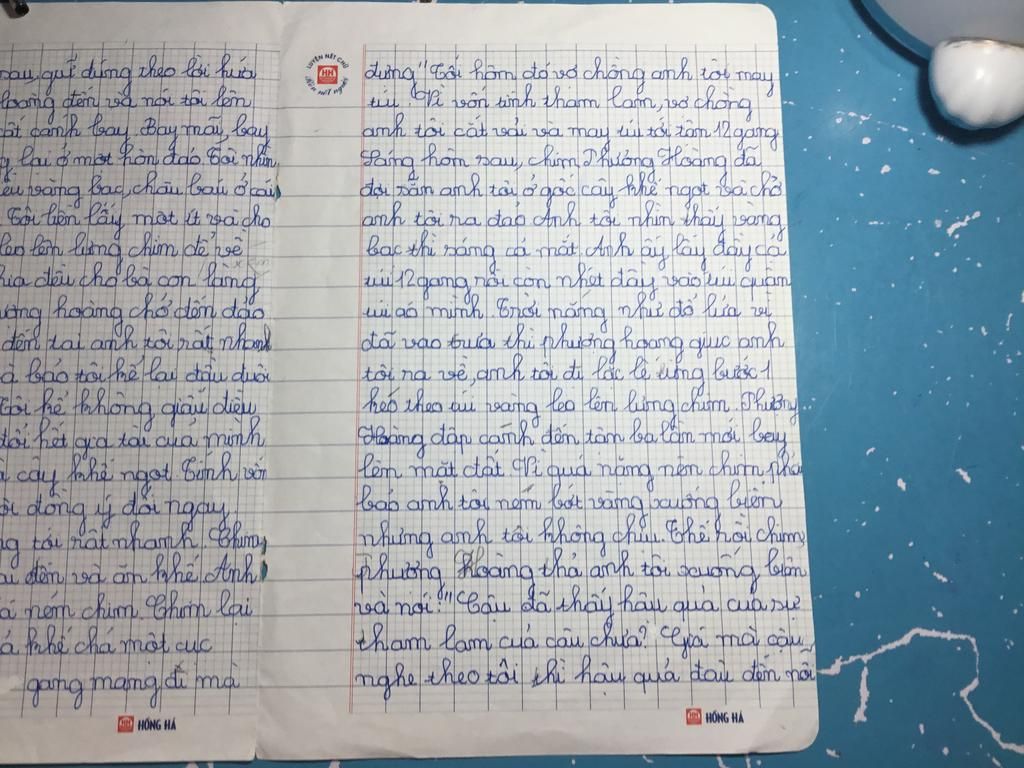 sau, quả đúng theo lời hứa
hoàng đến và nói tôi lên
cất cánh bay. Bay mãi, bay
lại ở một hòn đảo Tôi nhìn
vàng bạc, châu báu ở cây
Tôi liền lấy một ít và cho
leo lên lưng chim để về
chia đều cho bà con làng
hoàng chở đến đảo
đến tai anh tôi rất nhanh
bảo tôi kể lại đầu đuôi
Tôi kể không giấu diệu
tôi hết gia tài của mình
cây khế ngọt Tính vốn
đồng ý đổi ngay
tới rất nhanh. Chim
đến và ăn khế Anh
ném chim. Chim lại
khế chả một cục
gang mang đi mà
HỒNG HÀ
LUYỆN NÉT CHỮ
RÈN NẾT NGƯỜI
HH
đựng" Tối hôm đó vợ chồng anh tôi may
túi Vì vốn tính tham lam, vợ chồng
anh tôi cắt vải và may túi tới tận 12 gang
Sáng hôm sau, chim Phượng Hoàng đã
đợi sẵn anh tôi ở gốc cây khế ngọt và chở
anh tôi ra đảo Anh tôi nhìn thấy vàng
bạc thì sáng cả mắt. Anh ấy lấy đầy cả
túi 12 gang rồi còn nhét đầy vào túi quần
túi áo mình. Trời nắng như đổ lửa vì
đã vào trưa thì phượng hoàng giục anh
tôi ra về, anh tôi đi lặc lè từng bước 1
kéo theo túi vàng leo lên lưng chim. Phượng
Hoàng đập cánh đến tận ba lần mới bay
lên mặt đất Vì quá nặng nên chim phải
bảo anh tôi ném bớt vàng xuống biển
nhưng anh tôi không chịu. Thế rồi chim
phượng Hoàng thả anh tôi xuống biển
và nói: "Cậu đã thấy hậu quả của sự
tham lam của cậu chưa? Giá mà cậu
nghe theo tôi thì hậu quả đâu đến nỗi
HỒNG HÀ